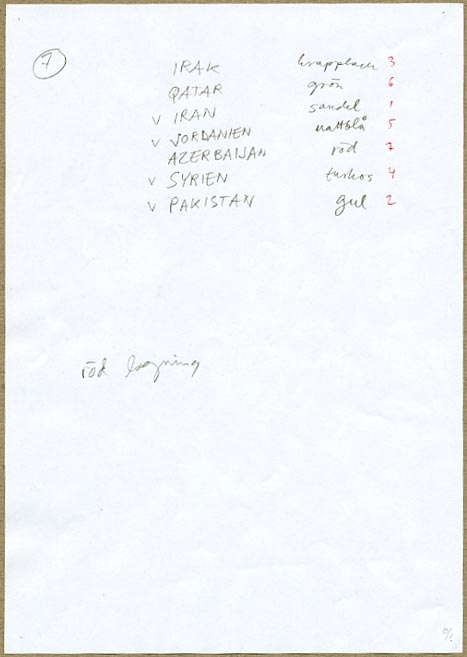 7
IRAK krapplack 3
QATAR grön 6
v IRAN sandel 1
v JORDANIEN nattblå 5
AZERBAIJAN röd 7
v SYRIEN turkos 4
v PAKISTAN gul 2
röd lagning